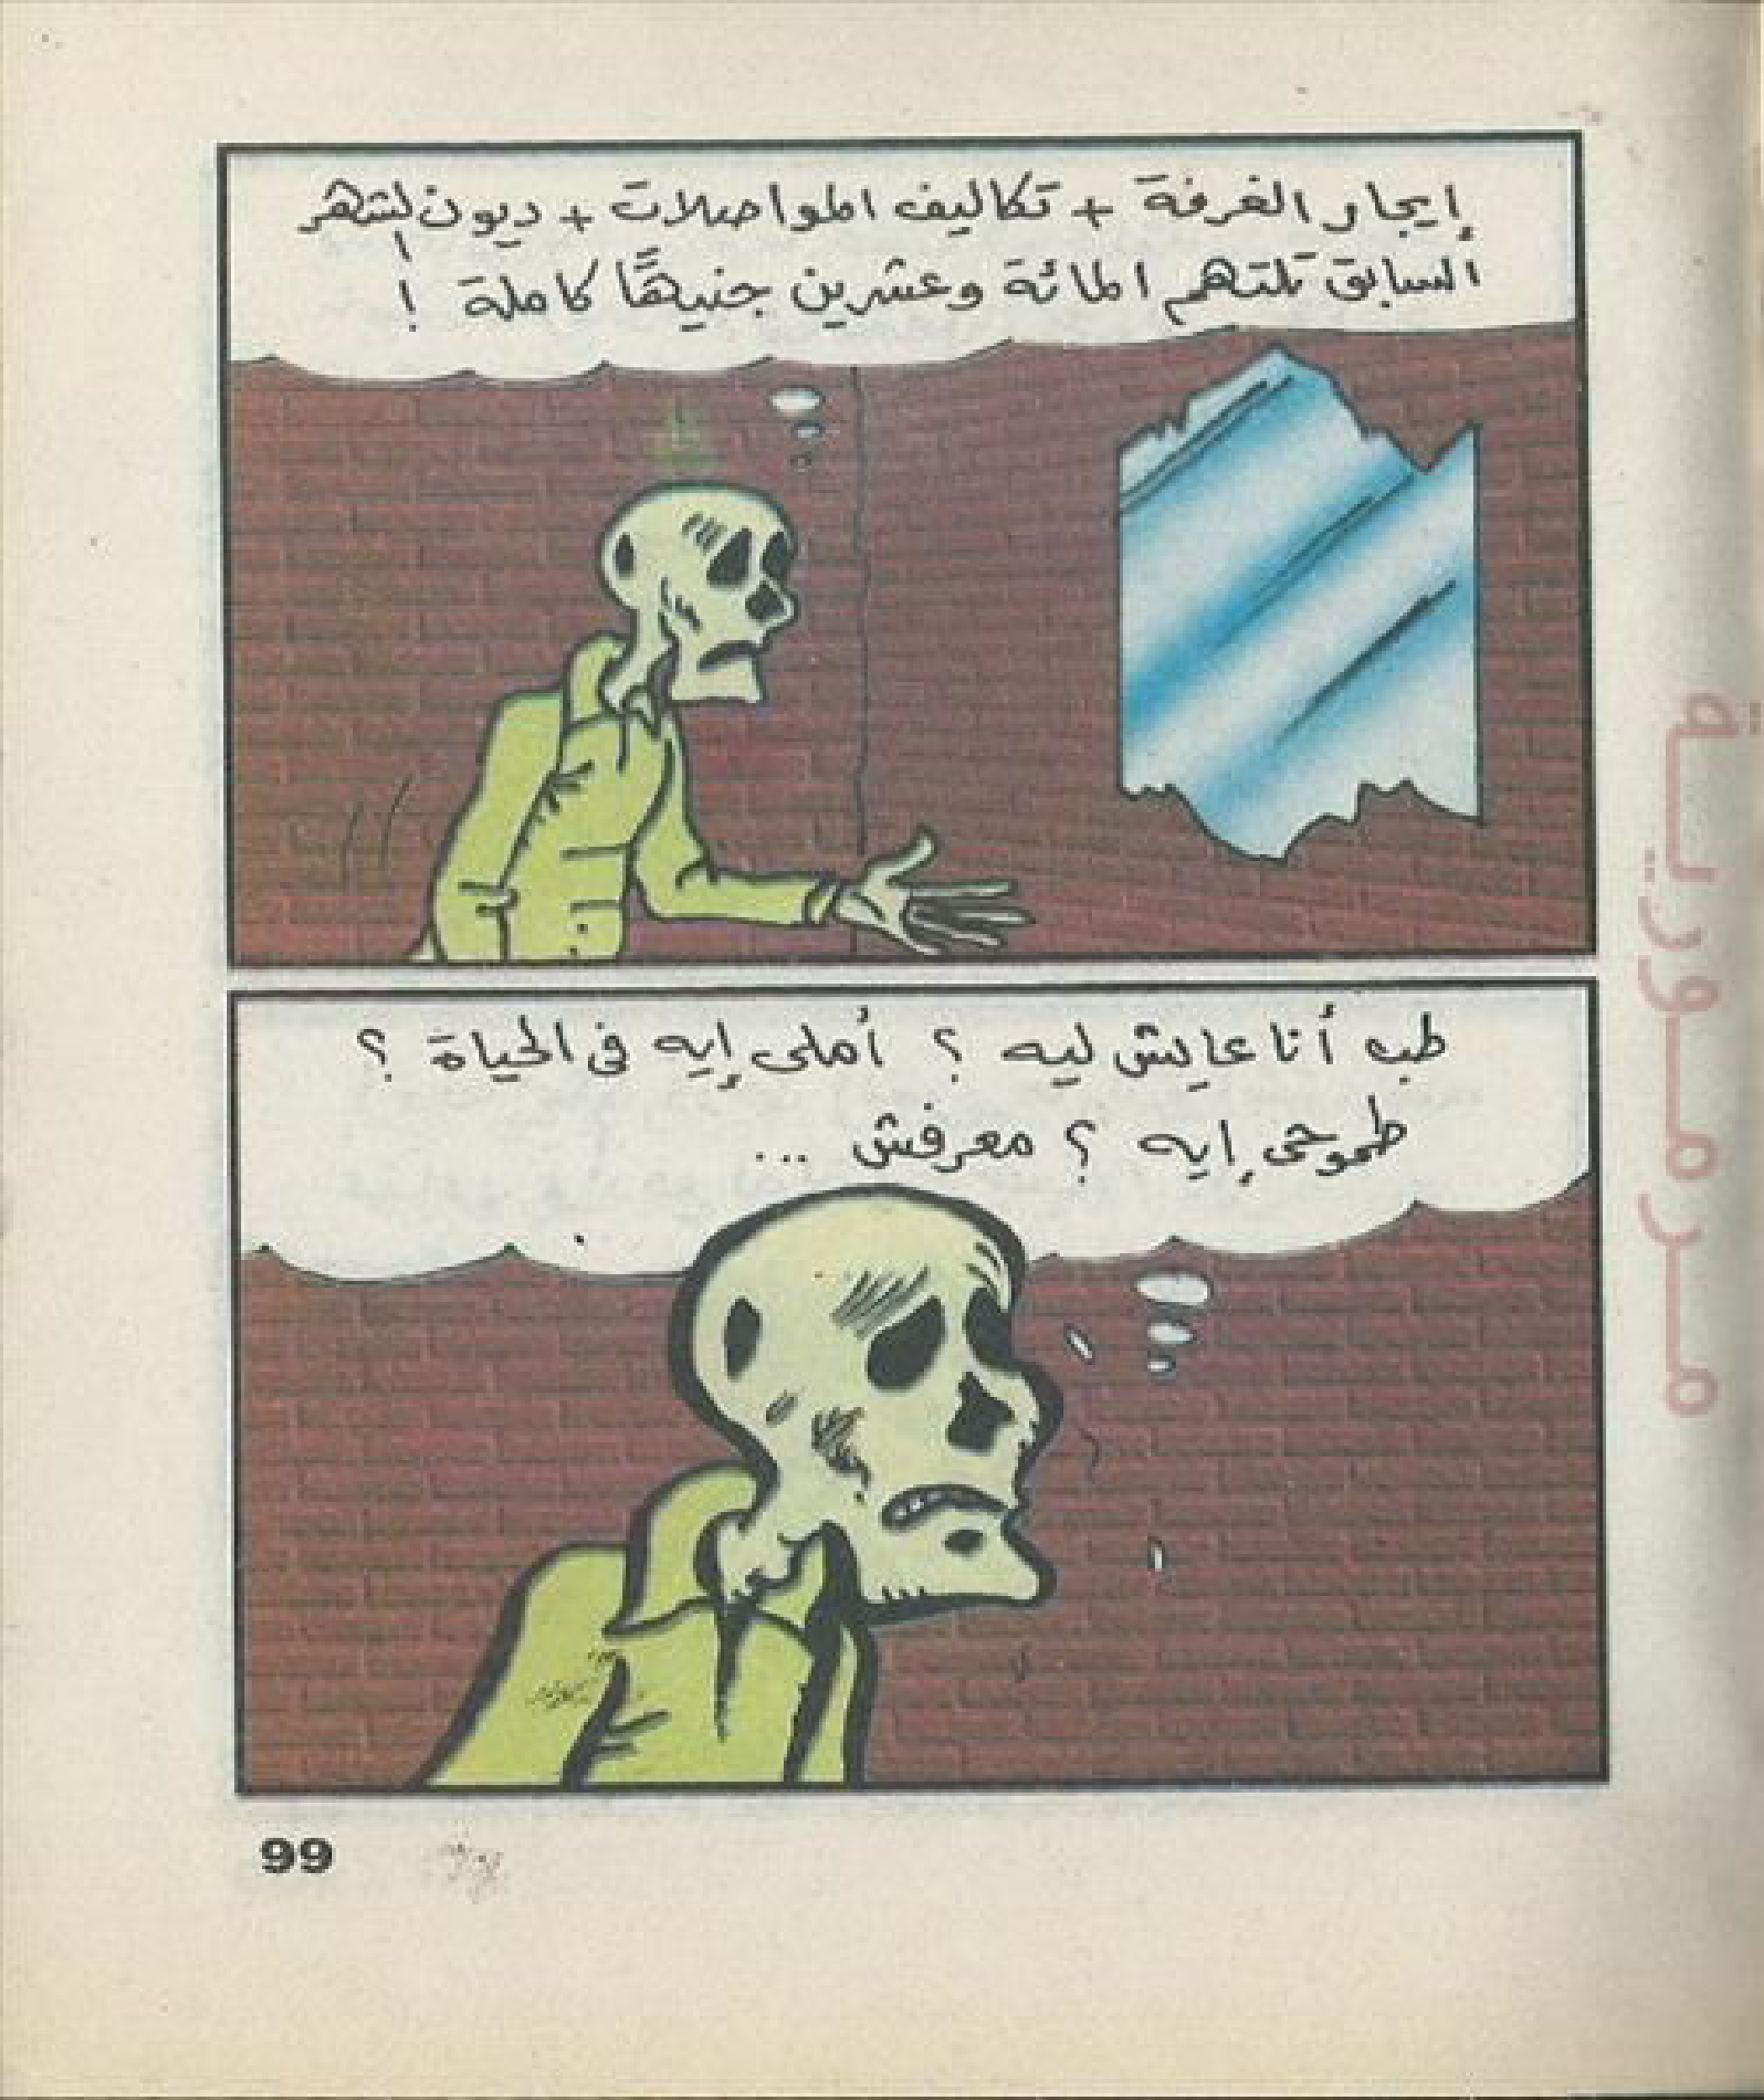 إيجار الغرفة + تكاليف المواصلات + ديون الشهر
السابق تلتهم المائة وعشرين جنيهًا كاملة !
طب أنا عايش ليه ؟ أملى إيه فى الحياة ؟
طموحى إيه ؟ معرفش ...
مرمورية
99